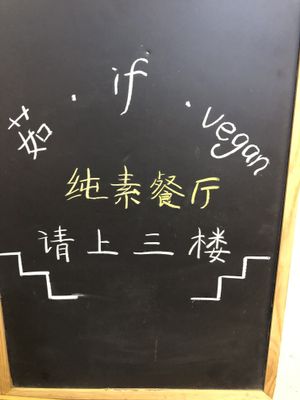 茹·if·vegan
纯素餐厅
请上三楼